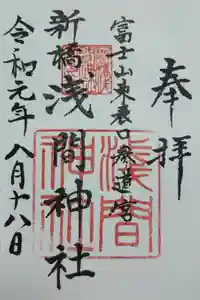 奉拝
富士山東表口参道宮
新橋浅間神社
令和元年八月十八日
浅間神社